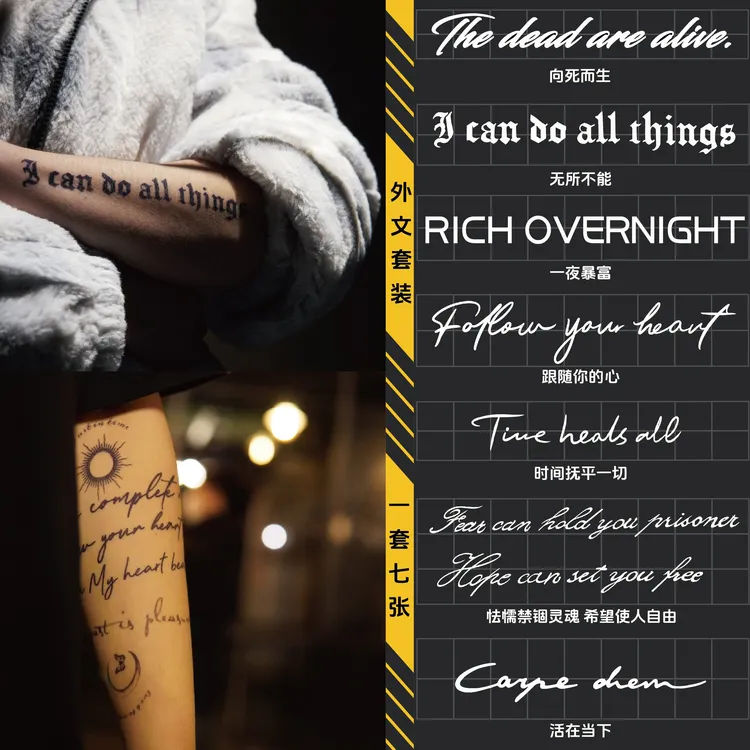 I can do all things
complete
your heart
My heart
is pleasu
外文套装
一套七张
The dead are alive.
向死而生
I can do all things
无所不能
RICH OVERNIGHT
一夜暴富
Follow your heart
跟随你的心
Time heals all
时间抚平一切
Fear can hold you prisoner
Hope can set you free
怯懦禁锢灵魂 希望使人自由
Carpe diem
活在当下